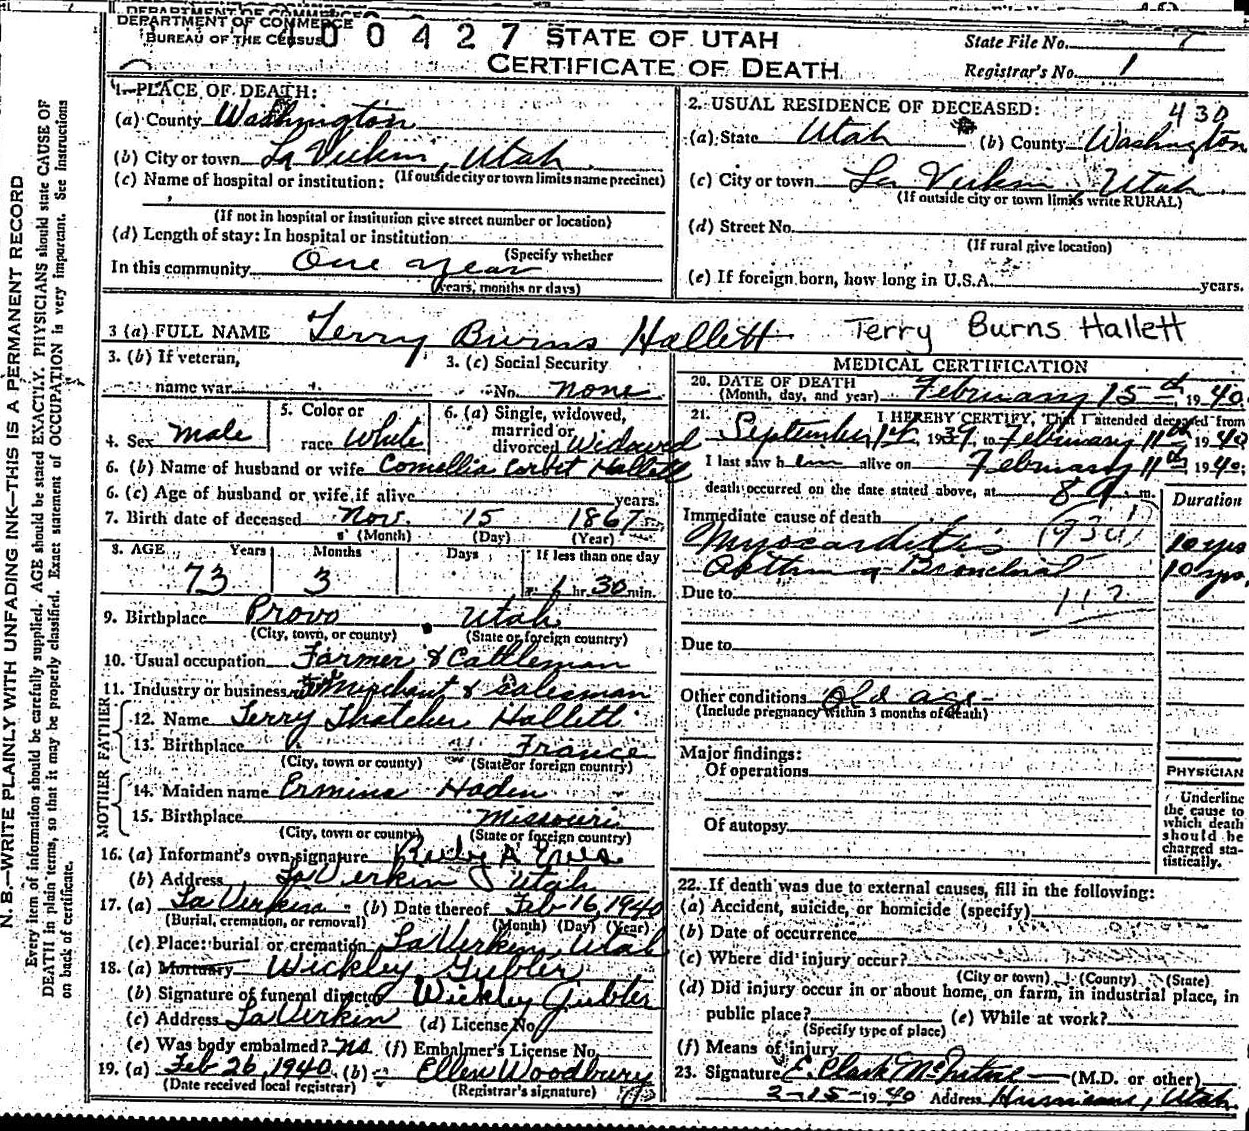 DEPARTMENT OF COMMERCE
BUREAU OF THE CENSUS
400427
STATE OF UTAH
CERTIFICATE OF DEATH
State File No. 7
Registrar's No. 1
1. PLACE OF DEATH:
(a) County Washington
(b) City or town La Verkin, Utah
(If outside city or town limits name precinct)
(c) Name of hospital or institution:
(If not in hospital or institution give street number or location)
(d) Length of stay: In hospital or institution
(Specify whether
In this community One year
years, months or days)
2. USUAL RESIDENCE OF DECEASED: 430
(a) State Utah (b) County Washington
(c) City or town La Verkin, Utah
(If outside city or town limits write RURAL)
(d) Street No.
(If rural give location)
(e) If foreign born, how long in U.S.A. years.
3 (a) FULL NAME Terry Burns Hallett Terry Burns Hallett
3. (b) If veteran,
name war
3. (c) Social Security
No. none
4. Sex Male
5. Color or
race White
6. (a) Single, widowed,
married or
divorced Widowed
6. (b) Name of husband or wife Cornellia Corbet Hallett
6. (c) Age of husband or wife if alive years.
7. Birth date of deceased Nov. 15 1867
(Month) (Day) (Year)
8. AGE Years Months Days If less than one day
73 3 hr. 30 min.
9. Birthplace Provo Utah
(City, town, or county) (State or foreign country)
10. Usual occupation Farmer & Cattleman
11. Industry or business Merchant & Salesman
FATHER
12. Name Terry Thatcher Hallett
13. Birthplace France
(City, town or county) (State or foreign country)
MOTHER
14. Maiden name Ermina Haden
15. Birthplace Missouri
(City, town or county) (State or foreign country)
16. (a) Informant's own signature
(b) Address La Verkin Utah
17. (a) La Verkin (b) Date thereof Feb 16, 1940
(Burial, cremation, or removal) (Month) (Day) (Year)
(c) Place: burial or cremation La Verkin, Utah
18. (a) Mortuary Wickley Gubler
(b) Signature of funeral director Wickley Gubler
(c) Address La Verkin (d) License No.
(e) Was body embalmed? no (f) Embalmer's License No.
19. (a) Feb 26, 1940 (b) Ellen Woodbury
(Date received local registrar) (Registrar's signature)
MEDICAL CERTIFICATION
20. DATE OF DEATH
(Month, day, and year) February 15th, 1940
21. I HEREBY CERTIFY, That I attended deceased from
September 1st, 1939, to February 11th 1940
I last saw him alive on February 11th, 1940;
death occurred on the date stated above, at 8 A. m.
Duration
Immediate cause of death
Myocarditis 10 yrs
Asthma Bronchial 10 yrs.
Due to 112
Due to
Other conditions Old age
(Include pregnancy within 3 months of death)
Major findings:
Of operations
Of autopsy
PHYSICIAN
Underline
the cause to
which death
should be
charged sta-
tistically.
22. If death was due to external causes, fill in the following:
(a) Accident, suicide, or homicide (specify)
(b) Date of occurrence
(c) Where did injury occur?
(City or town) (County) (State)
(d) Did injury occur in or about home, on farm, in industrial place, in
public place? (e) While at work?
(Specify type of place)
(f) Means of injury
23. Signature E. Clark McIntire (M.D. or other)
2-15-1940 Address Hurricane, Utah
N. B.—WRITE PLAINLY WITH UNFADING INK—THIS IS A PERMANENT RECORD
Every item of information should be carefully supplied. AGE should be stated EXACTLY. PHYSICIANS should state CAUSE OF
DEATH in plain terms, so that it may be properly classified. Exact statement of OCCUPATION is very important. See Instructions
on back of certificate.